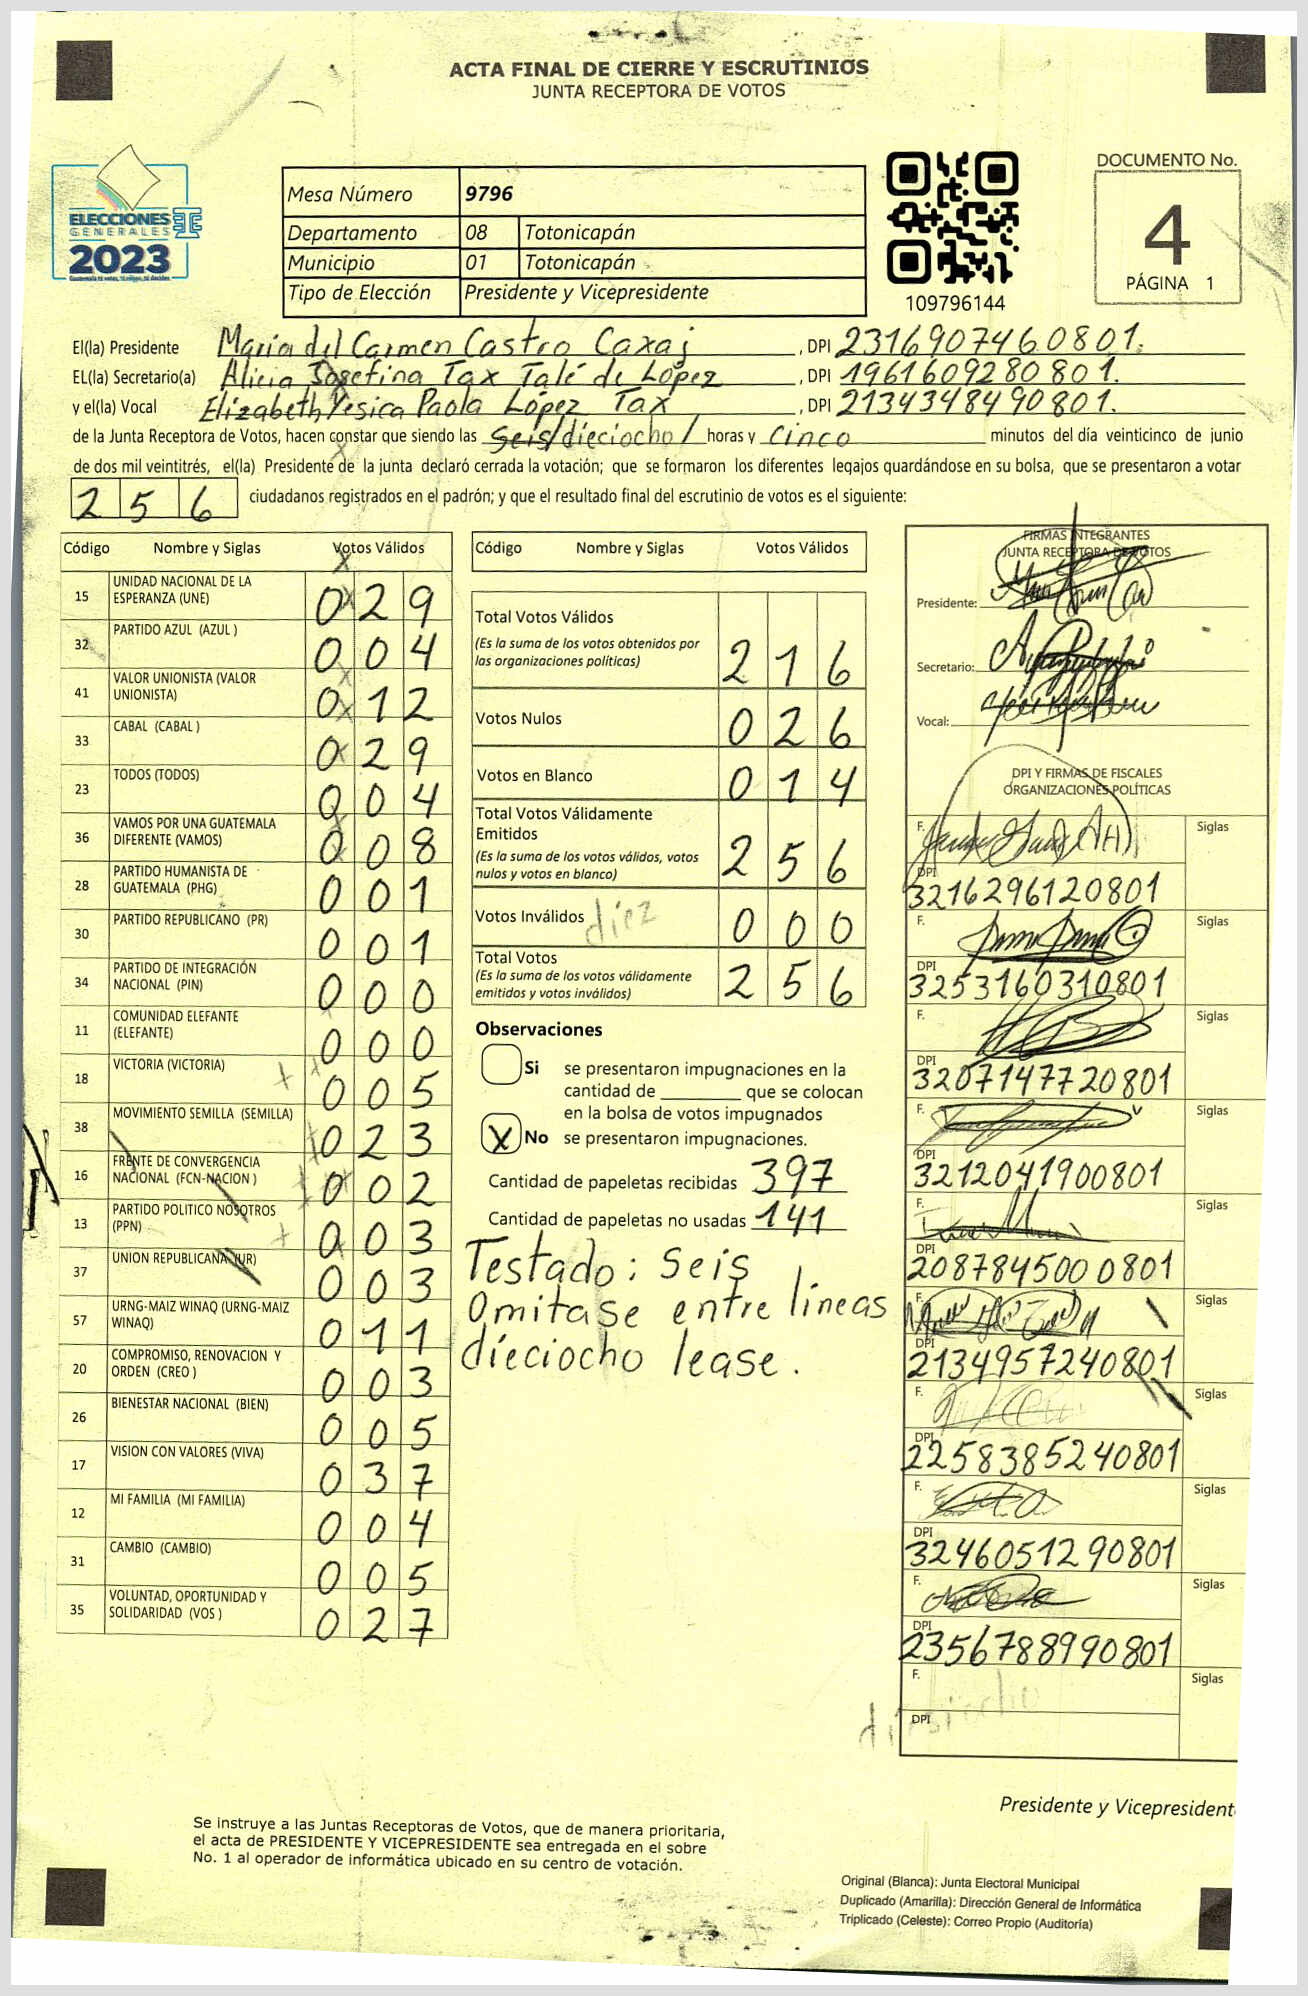 ACTA FINAL DE CIERRE Y ESCRUTINIOS
JUNTA RECEPTORA DE VOTOS
ELECCIONES
GENERALES
2023
Mesa Número 9796
Departamento 08 Totonicapán
Municipio 01 Totonicapán
Tipo de Elección Presidente y Vicepresidente
109796144
DOCUMENTO No.
4
PÁGINA 1
El(la) Presidente Maria del Carmen Castro Caxaj, DPI 2316907460801.
EL(la) Secretario(a) Alicia Josefina Tax Talé de López, DPI 1961609280801.
y el(la) Vocal Elizabeth Yesica Paola López Tax, DPI 2134348490801.
de la Junta Receptora de Votos, hacen constar que siendo las seis/dieciocho/ horas y cinco minutos del día veinticinco de junio
de dos mil veintitrés, el(la) Presidente de la junta declaró cerrada la votación; que se formaron los diferentes legajos guardándose en su bolsa, que se presentaron a votar
256 ciudadanos registrados en el padrón; y que el resultado final del escrutinio de votos es el siguiente:
Código Nombre y Siglas Votos Válidos
15 UNIDAD NACIONAL DE LA ESPERANZA (UNE) 029
32 PARTIDO AZUL (AZUL ) 004
41 VALOR UNIONISTA (VALOR UNIONISTA) 012
33 CABAL (CABAL ) 029
23 TODOS (TODOS) 004
36 VAMOS POR UNA GUATEMALA DIFERENTE (VAMOS) 008
28 PARTIDO HUMANISTA DE GUATEMALA (PHG) 001
30 PARTIDO REPUBLICANO (PR) 001
34 PARTIDO DE INTEGRACIÓN NACIONAL (PIN) 000
11 COMUNIDAD ELEFANTE (ELEFANTE) 000
18 VICTORIA (VICTORIA) 005
38 MOVIMIENTO SEMILLA (SEMILLA) 023
16 FRENTE DE CONVERGENCIA NACIONAL (FCN-NACION ) 002
13 PARTIDO POLITICO NOSOTROS (PPN) 003
37 UNION REPUBLICANA (UR) 003
57 URNG-MAIZ WINAQ (URNG-MAIZ WINAQ) 011
20 COMPROMISO, RENOVACION Y ORDEN (CREO ) 003
26 BIENESTAR NACIONAL (BIEN) 005
17 VISION CON VALORES (VIVA) 037
12 MI FAMILIA (MI FAMILIA) 004
31 CAMBIO (CAMBIO) 005
35 VOLUNTAD, OPORTUNIDAD Y SOLIDARIDAD (VOS ) 027
Código Nombre y Siglas Votos Válidos
Total Votos Válidos
(Es la suma de los votos obtenidos por las organizaciones políticas) 216
Votos Nulos 026
Votos en Blanco 014
Total Votos Válidamente Emitidos
(Es la suma de los votos válidos, votos nulos y votos en blanco) 256
Votos Inválidos diez 000
Total Votos
(Es la suma de los votos válidamente emitidos y votos inválidos) 256
Observaciones
Si se presentaron impugnaciones en la
cantidad de ________ que se colocan
en la bolsa de votos impugnados
X No se presentaron impugnaciones.
Cantidad de papeletas recibidas 397
Cantidad de papeletas no usadas 141
Testado: seis
Omitase entre lineas
dieciocho lease.
FIRMAS INTEGRANTES
JUNTA RECEPTORA DE VOTOS
Presidente:
Secretario:
Vocal:
DPI Y FIRMAS DE FISCALES
ORGANIZACIONES POLÍTICAS
F. Siglas
DPI 3216296120801
F. Siglas
DPI 3253160310801
F. Siglas
DPI 3207147720801
F. Siglas
DPI 3212041900801
F. Siglas
DPI 2087845000801
F. Siglas
DPI 2134957240801
F. Siglas
DPI 2258385240801
F. Siglas
DPI 3246051290801
F. Siglas
DPI 2356788990801
F. Siglas
DPI
dieciocho
Presidente y Vicepresident
Se instruye a las Juntas Receptoras de Votos, que de manera prioritaria,
el acta de PRESIDENTE Y VICEPRESIDENTE sea entregada en el sobre
No. 1 al operador de informática ubicado en su centro de votación.
Original (Blanca): Junta Electoral Municipal
Duplicado (Amarilla): Dirección General de Informática
Triplicado (Celeste): Correo Propio (Auditoría)